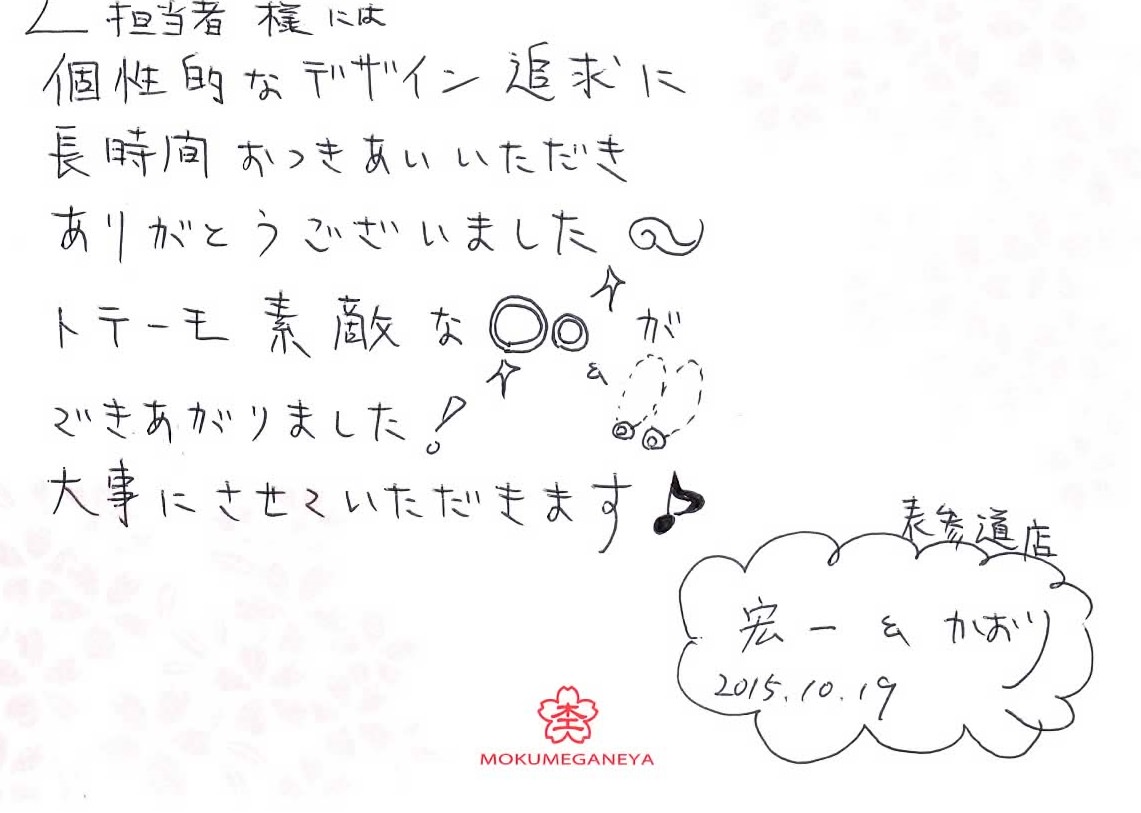 担当者 様には
個性的なデザイン 追求に
長時間 おつきあい いただき
ありがとうございました
トテーモ 素敵な が
&
できあがりました!
大事にさせていただきます♪
表参道店
宏一 & かおり
2015.10.19
杢
MOKUMEGANEYA